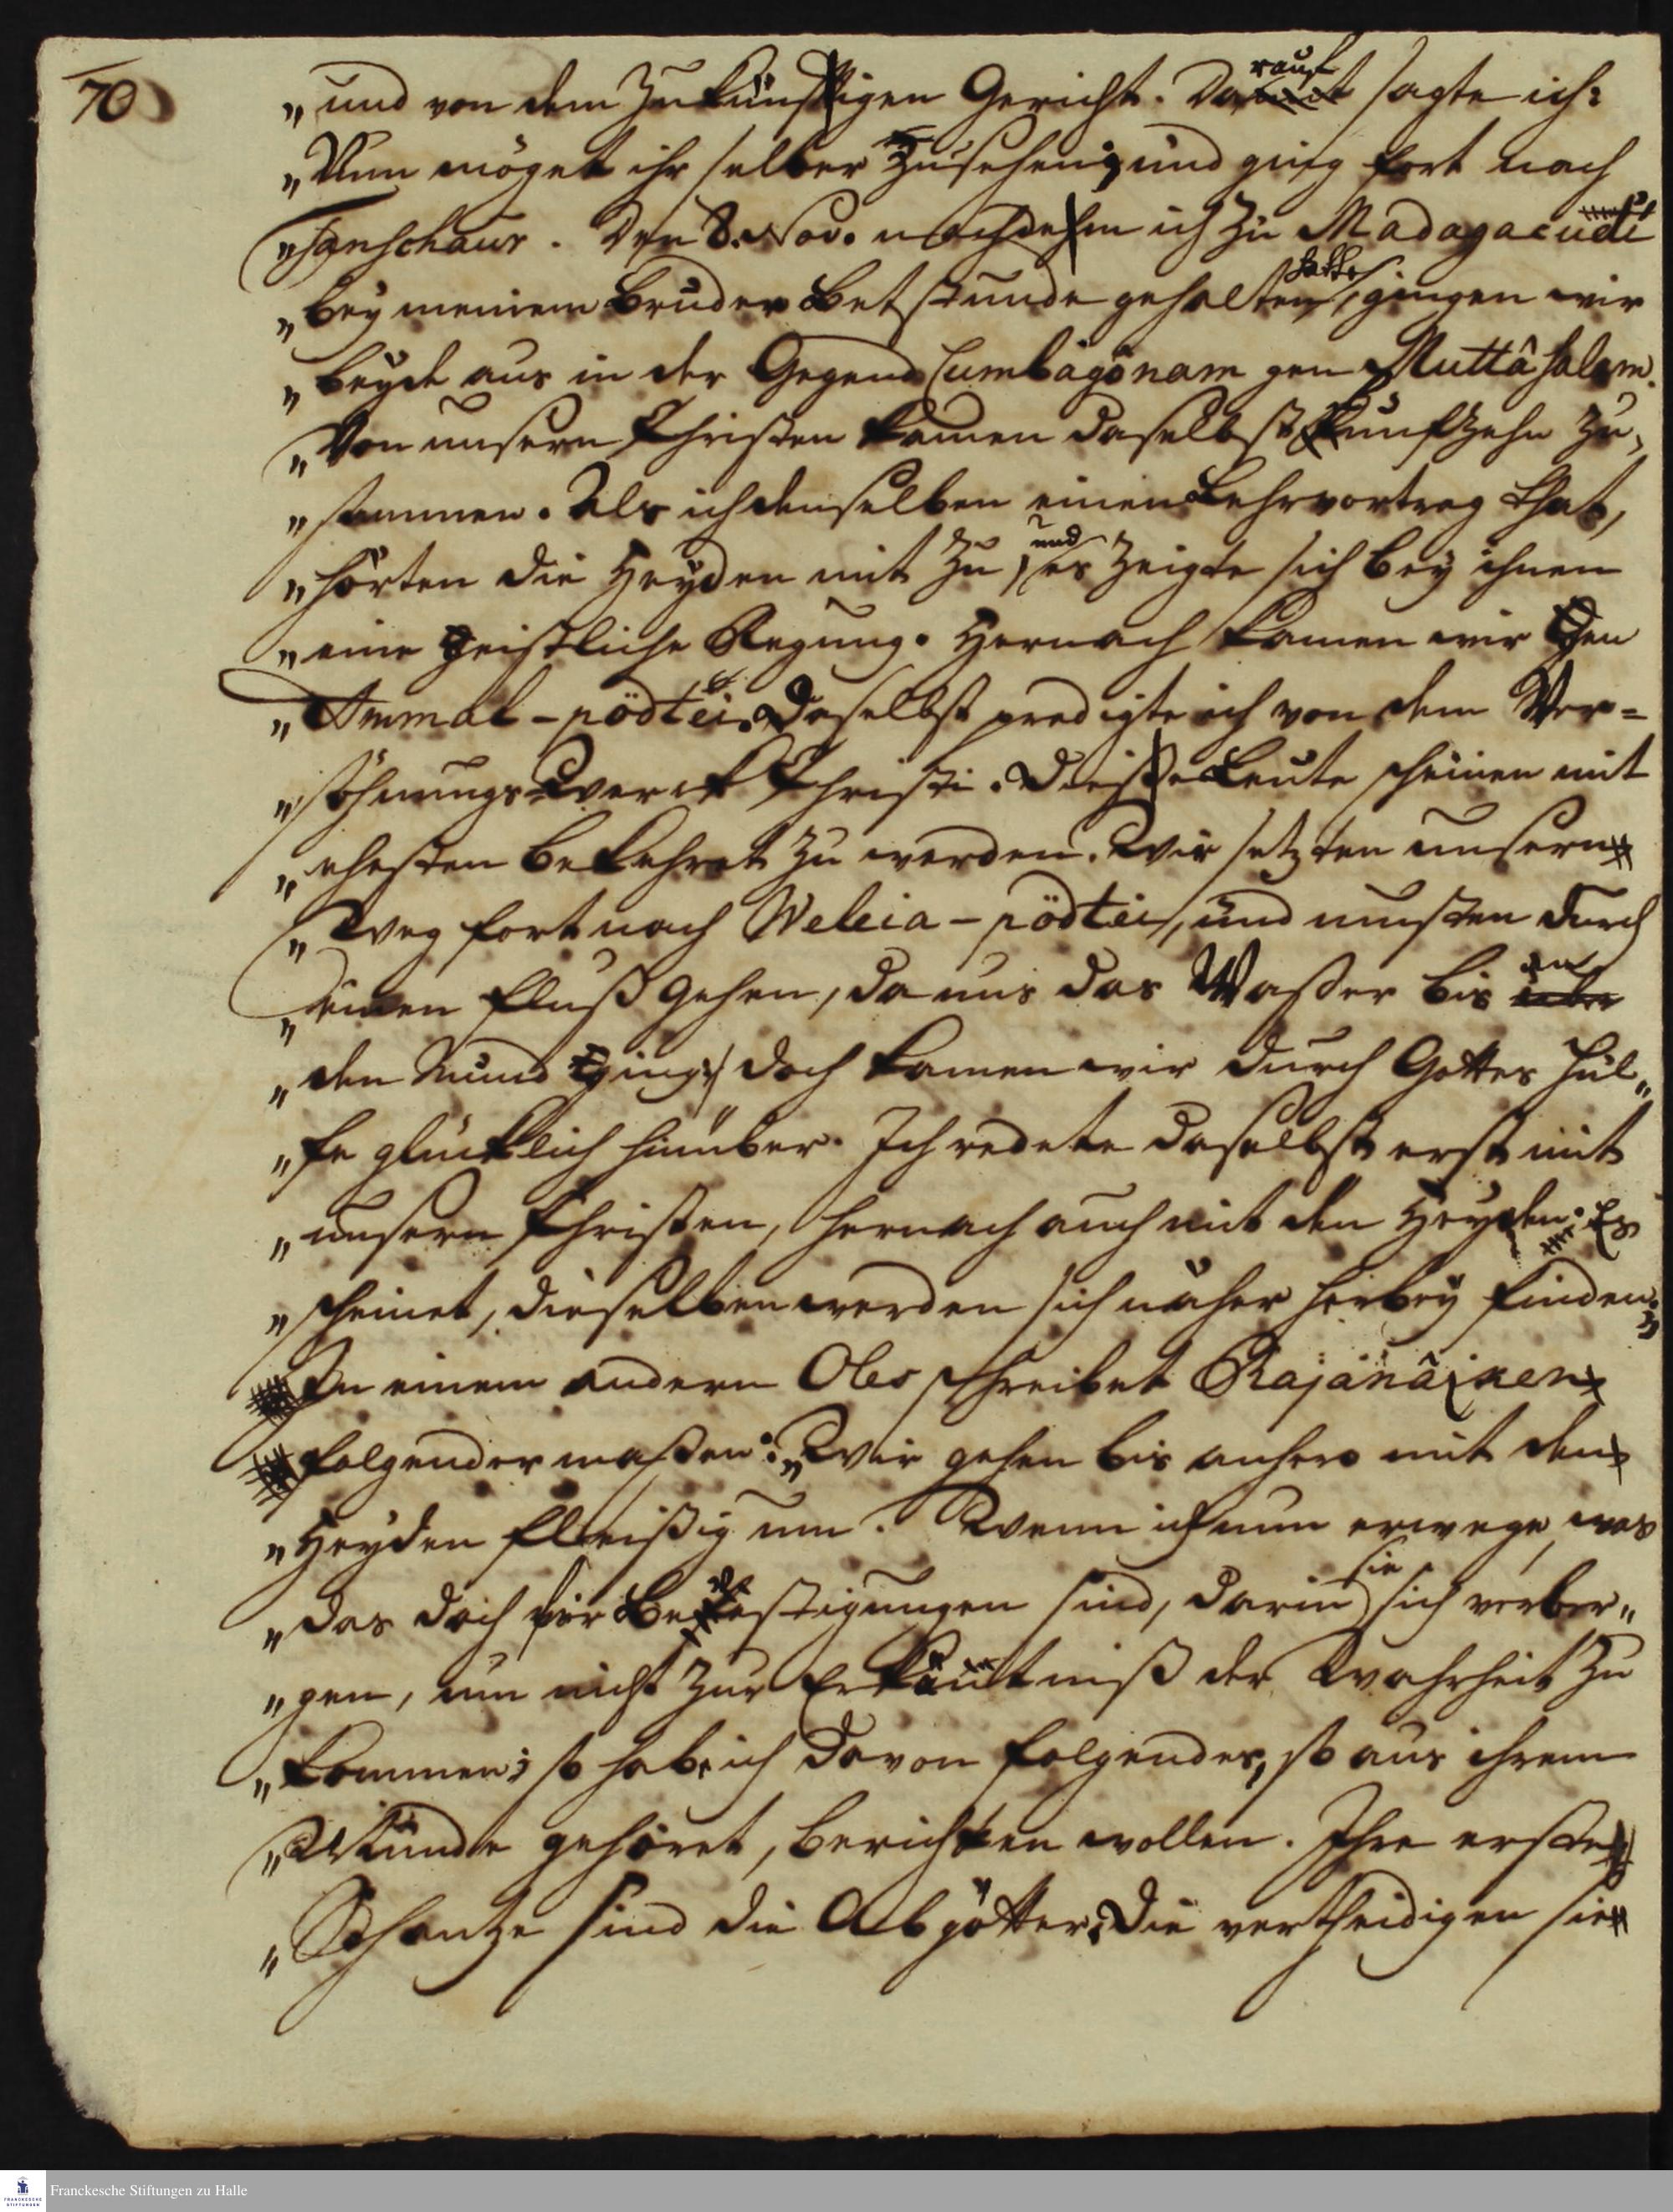 70
„und von dem zukünftigen Gericht. Darauf sagte ich:
„Nun möget ihr selber zusehen; und ging fort nach
„Tanschaur. Den 8. Nov. nachdem ich zu Madagacudi
„bey meinem Bruder Betstunde gehalten hatte, gingen wir
„beyde aus in der Gegend Cumbagonam gen Muttâsalam.
„Von unsern Christen kamen daselbst funfzehn zu„
„sammen. Als ich denselben einen Lehrvortrag that,
„hörten die Heyden mit zu, und es zeigte sich bey ihnen
„eine geistliche Regung. Hernach kamen wir gen
„Ammal-pödtei. Daselbst predigte ich von dem Ver=
„söhnungs Werck Christi. Diese Leute scheinen mit
„ehesten bekehret zu werden. Wir setzten unsern
„Weg fort nach Weleia-pödtei, und musten durch
„einen Fluß gehen, da uns das Waßer bis an
„den Mund ging; doch kamen wir durch Gottes Hül„
„fe glücklich hinüber. Ich redete daselbst erst mit
„unsern Christen, hernach auch mit den Heyden. Es
„scheinet, dieselben werden sich näher herbey finden.„
In einem andern Oles schreibet Rajanâiken
folgender maßen: „Wir gehen bis anhero mit den
„Heyden fleißig um. Wenn ich nun erwege, was
„das doch für Befestigungen sind, darin sie sich verber„
„gen, um nicht zur Erkäntniß der Wahrheit zu
„kommen; so hab ich davon folgendes, so aus ihrem
„Munde gehöret, berichten wollen. Ihre erste
„Schantze sind die Abgötter: Die vertheidigen sie
Franckesche Stiftungen zu Halle